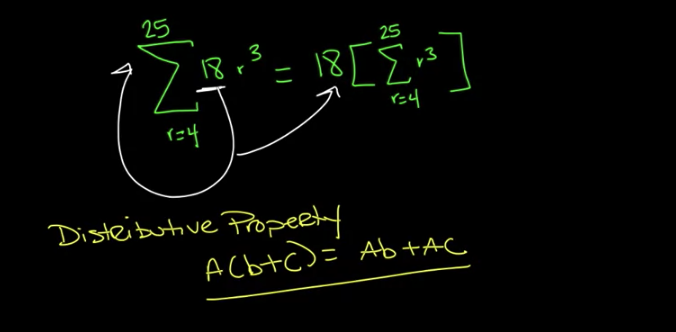 25
∑ 18 r³ = 18 [ ∑ r³ ]
r=4
25
r=4
Distributive Property
A(b+c) = Ab+AC